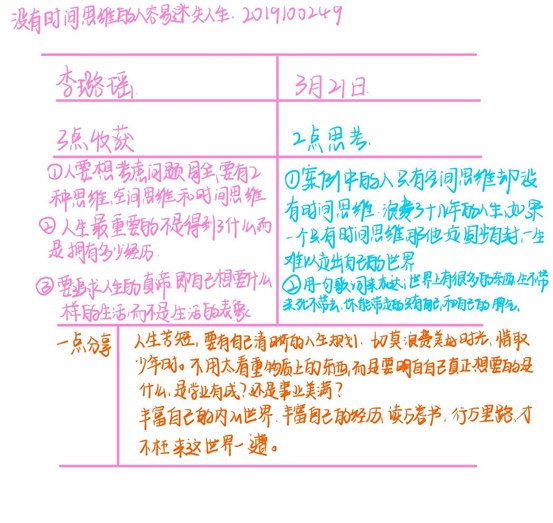 没有时间思维的人容易迷失人生. 2019100249
李璐瑶.
3月21日.
3点收获
2点思考.
①人要想考虑问题周全,要有2
种思维,空间思维和时间思维
②人生最重要的不是得到了什么而
是拥有多少经历.
③要追求人生的真帝 即自己想要什么
样的生活,而不是生活的表象
①案例中的人只有空间思维却没
有时间思维.浪费了十几年的人生,如果
一个只有时间思维那他故固步自封,一生
难以走出自己的世界
②用一句歌词来表达:世界上有很多的东西,生不带
来死不带去,你能带走的只有自己和自己的脾气.
一点分享
人生苦短,要有自己清晰的人生规划.切莫浪费美好时光,惜取
少年时。不用太看重物质上的东西,而是要明白自己真正想要的是
什么,是学业有成?还是事业美满?
丰富自己的内心世界.丰富自己的经历,读万卷书,行万里路,才
不枉来这世界一遭。